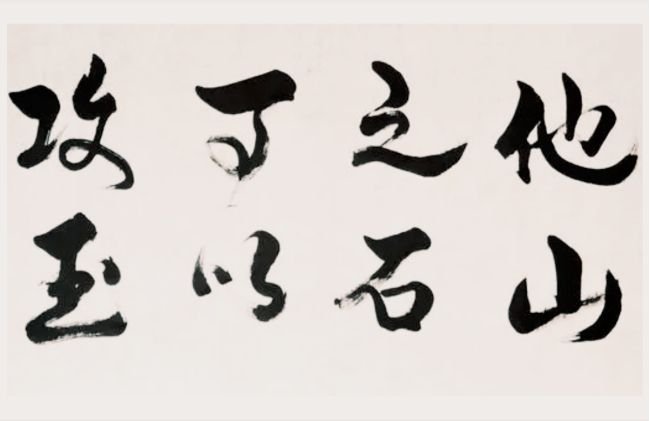 他山
之石
可以
攻玉